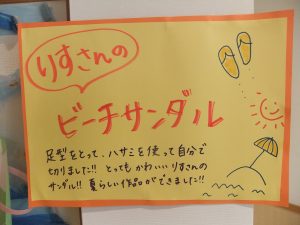 りすさんの
ビーチサンダル
足型をとって、ハサミを使って自分で
切りました!! とってもかわいいりすさんの
サンダル!! 夏らしい作品ができました!!